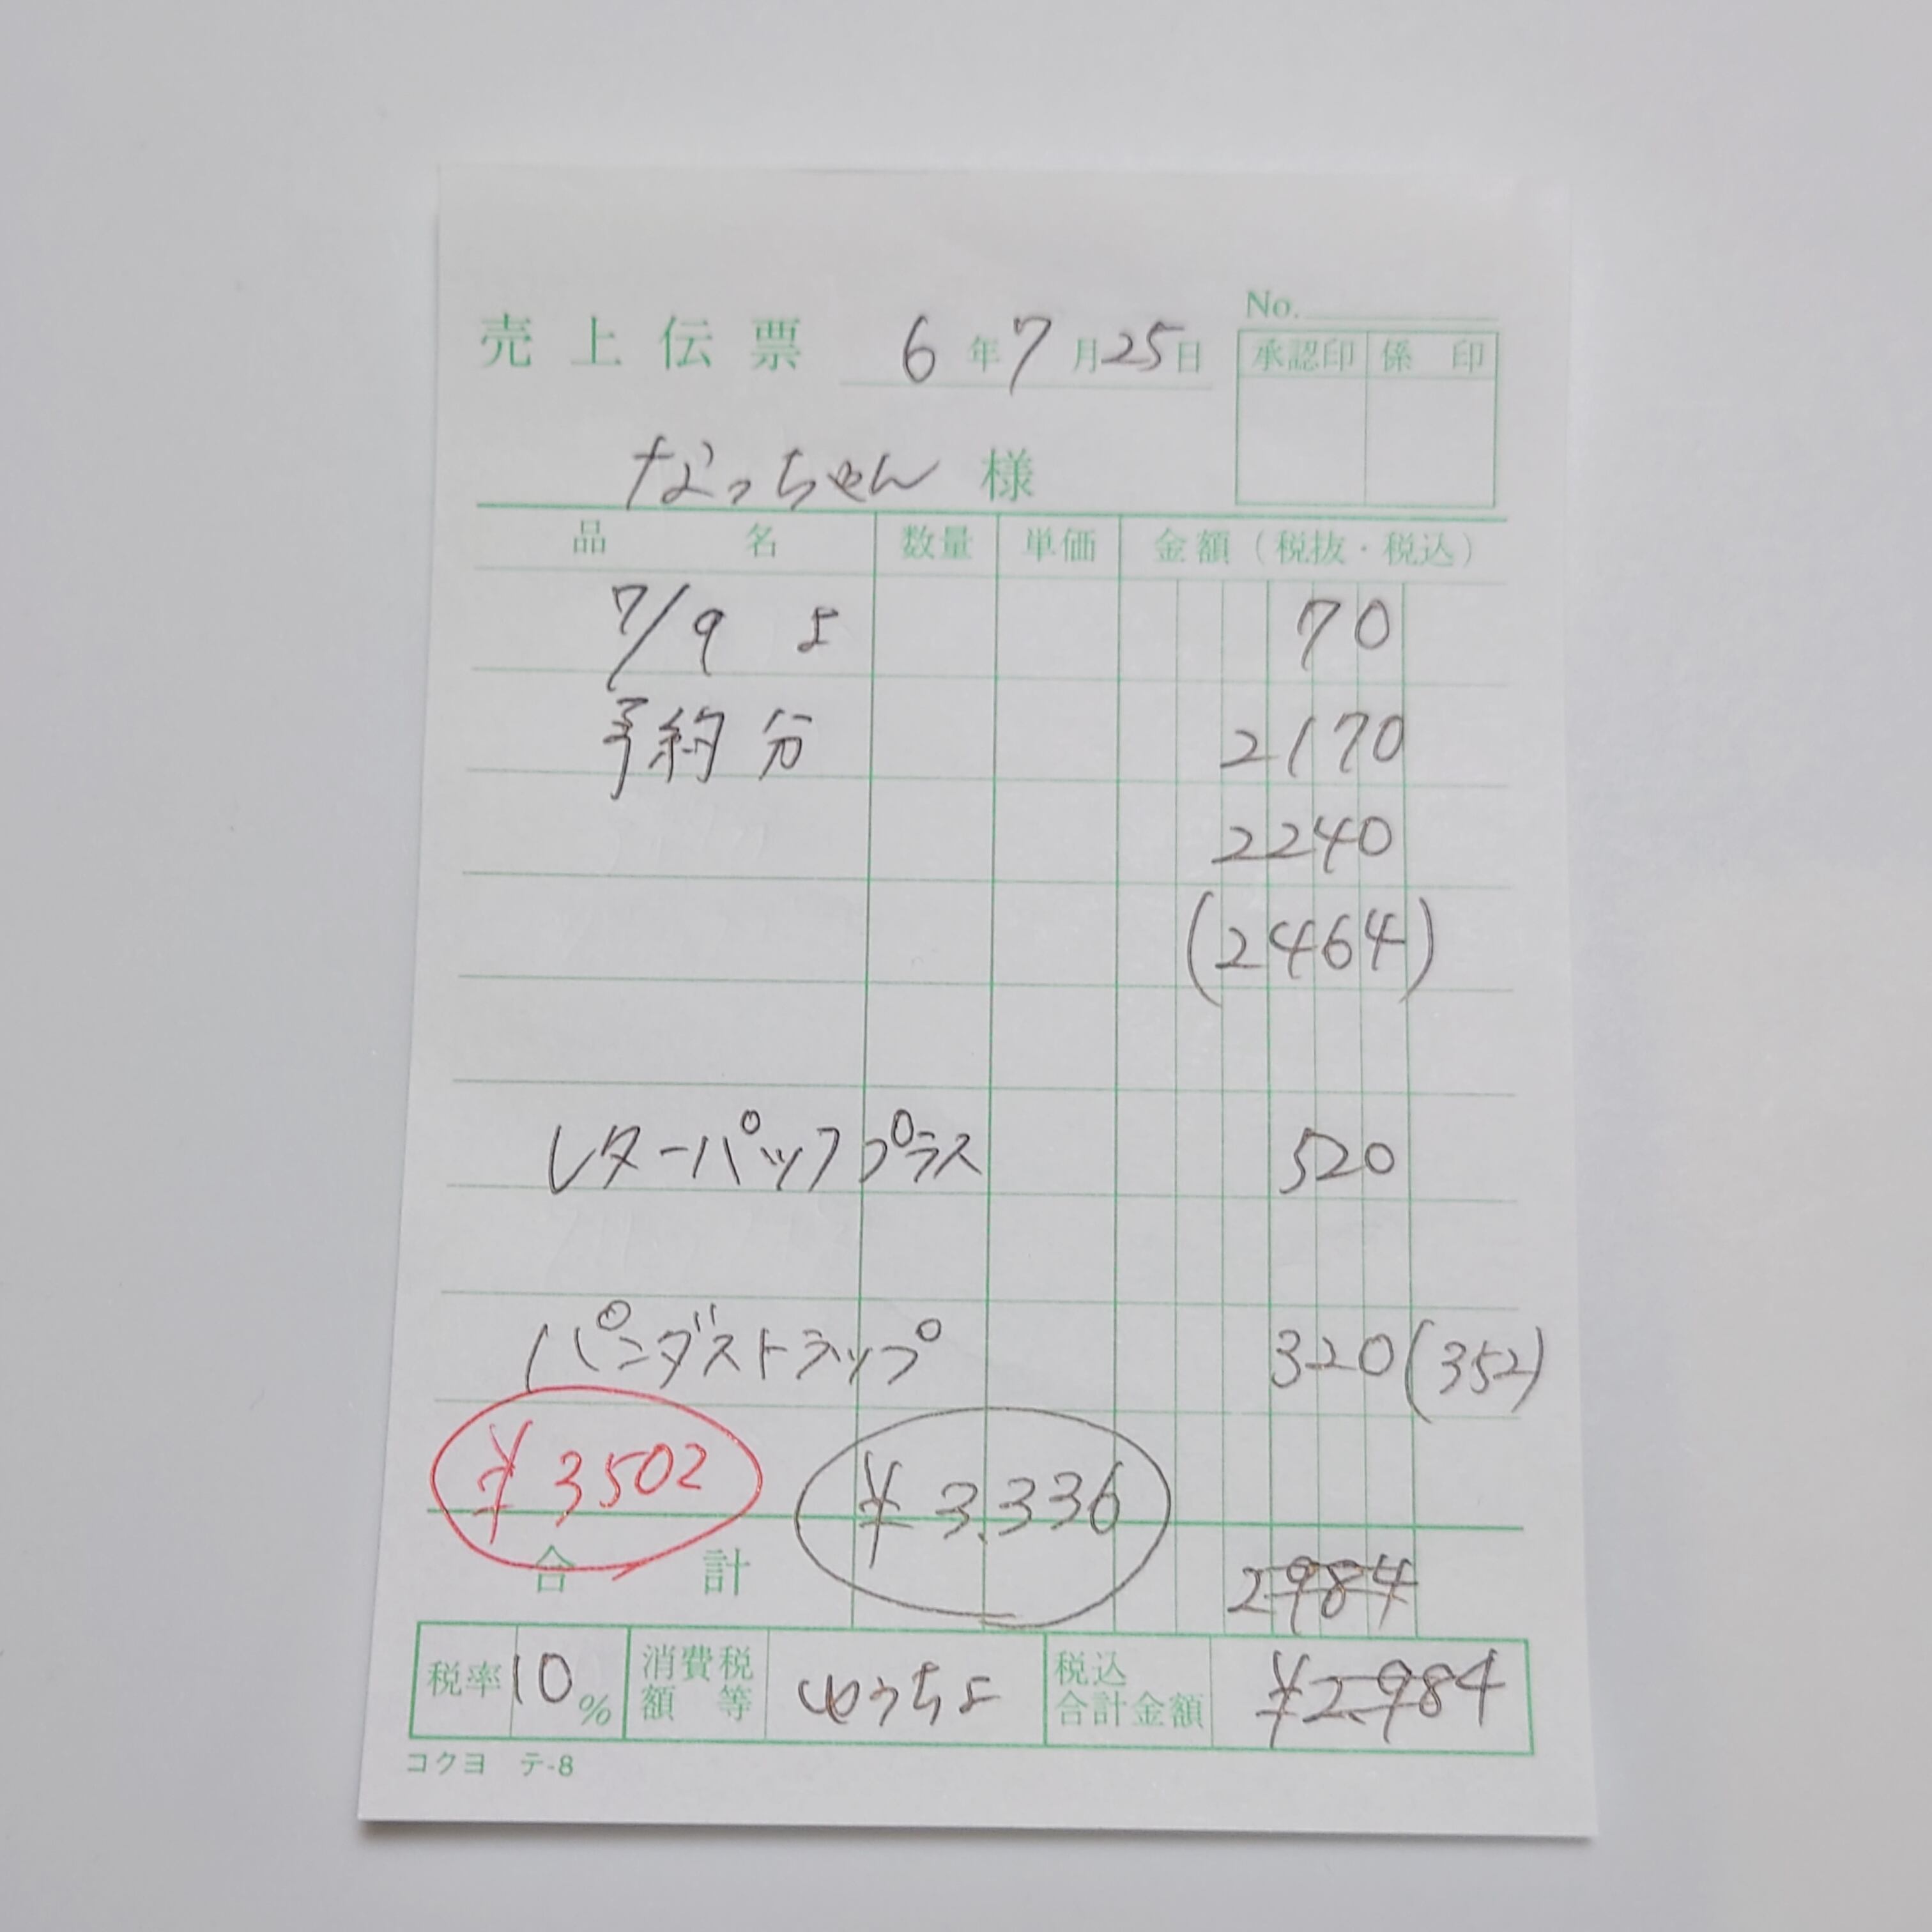 No.
売上伝票 6年7月25日
承認印 係印
なっちゃん 様
品名 数量 単価 金額(税抜・税込)
7/9 よ 70
予約分 2170
2240
(2464)
レターパックプラス 520
パンダストラップ 320(352)
¥3502 ¥3.336
合計 2984
税率 10% 消費税額等 ゆうちょ 税込合計金額 ¥2.984
コクヨ テ-8